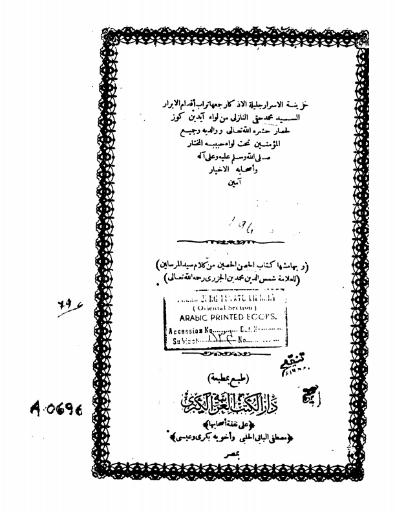 خزينة الاسرار جليلة الاذكار جمعها تراب أقدام الابرار
السيد محمد حقى النازلى من لواء آيدين كوز
لحصار حشره الله تعالى ووالديه وجميع
المؤمنين تحت لواء حبيبه المختار
صلى الله وسلم عليه وعلى آله
وأصحابه الاخيار
آمين
(وبهامشها كتاب الحصن الحصين من كلام سيد المرسلين)
(للعلامة شمس الدين محمد بن الجزرى رحمه الله تعالى)
796
(Oriental Section)
ARABIC PRINTED BOOKS.
Accession No.
Subject No.
(طبع بمطبعة)
دار الكتب العربية الكبرى
A.0696
(على نفقة أصحابها)
(مصطفى البابى الحلبى وأخويه بكرى وعيسى)
بمصر